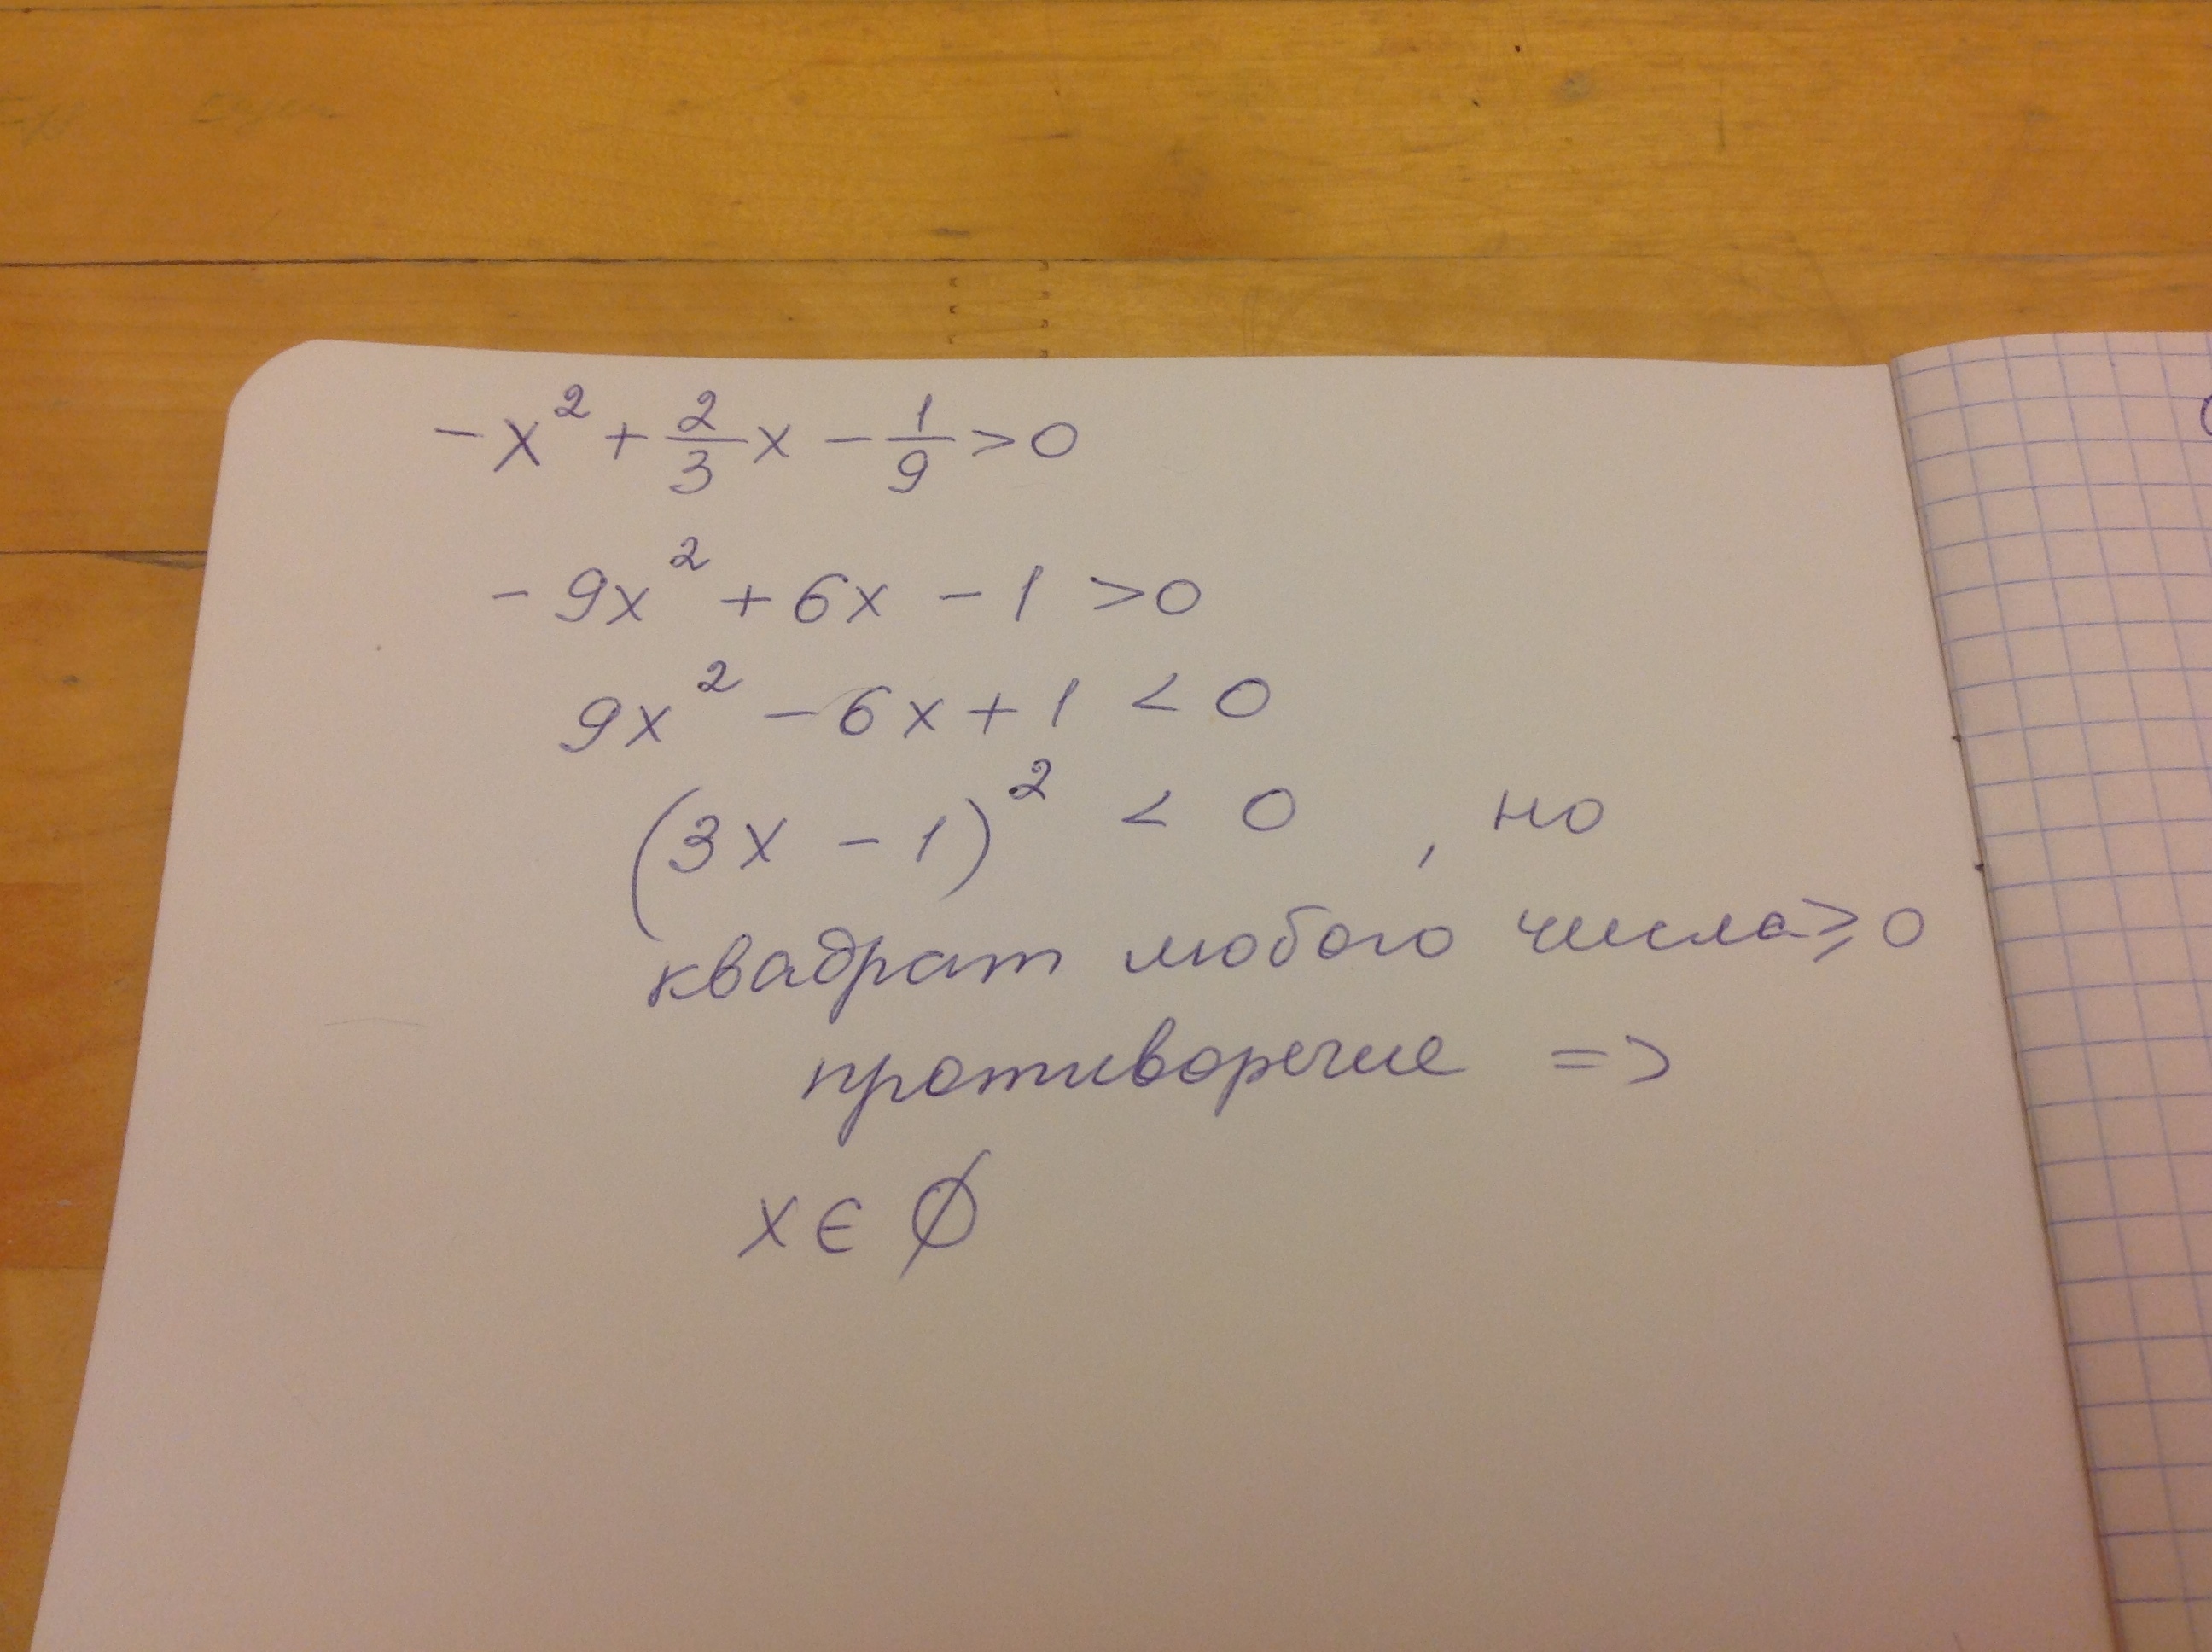 -x² + 2/3 x - 1/9 > 0
- 9x² + 6x - 1 > 0
9x² - 6x + 1 < 0
(3x - 1)² < 0 , но
квадрат любого числа ⩾ 0
противоречие =>
x ∈ ∅